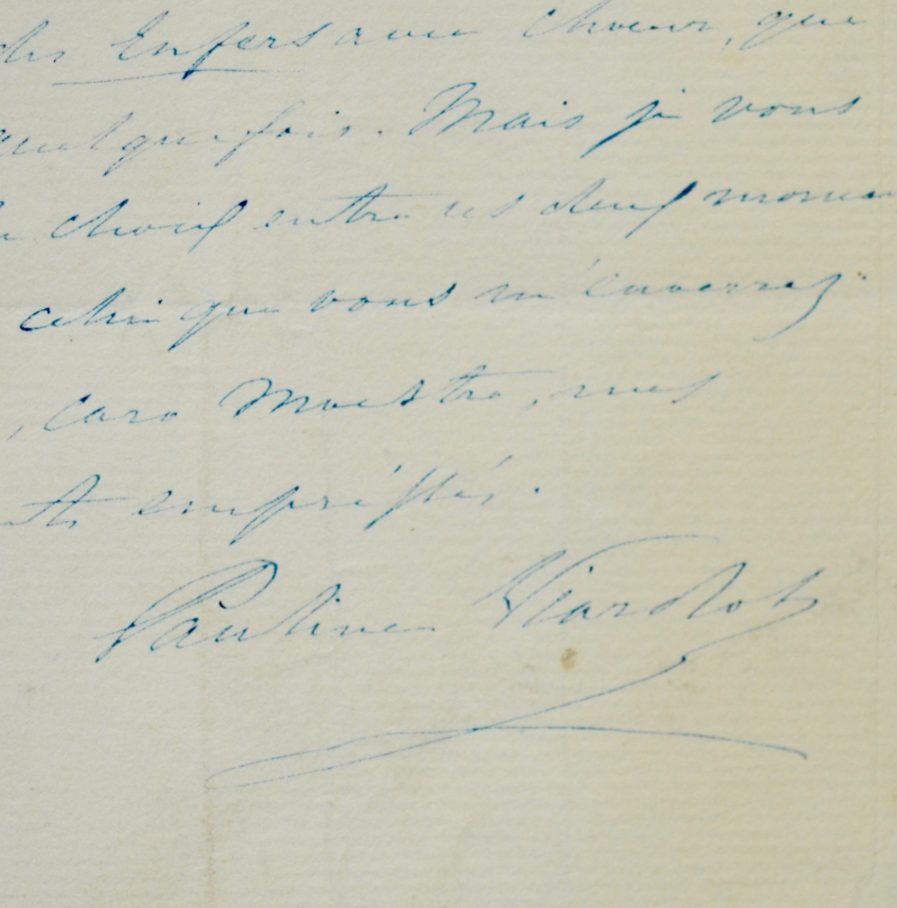 des Enfers avec choeur, que
quelquefois. Mais je vous
choix entre ces deux morceau
celui que vous m'enverrez
, caro Maestro, mes
ts empréssés.
Pauline Viardot